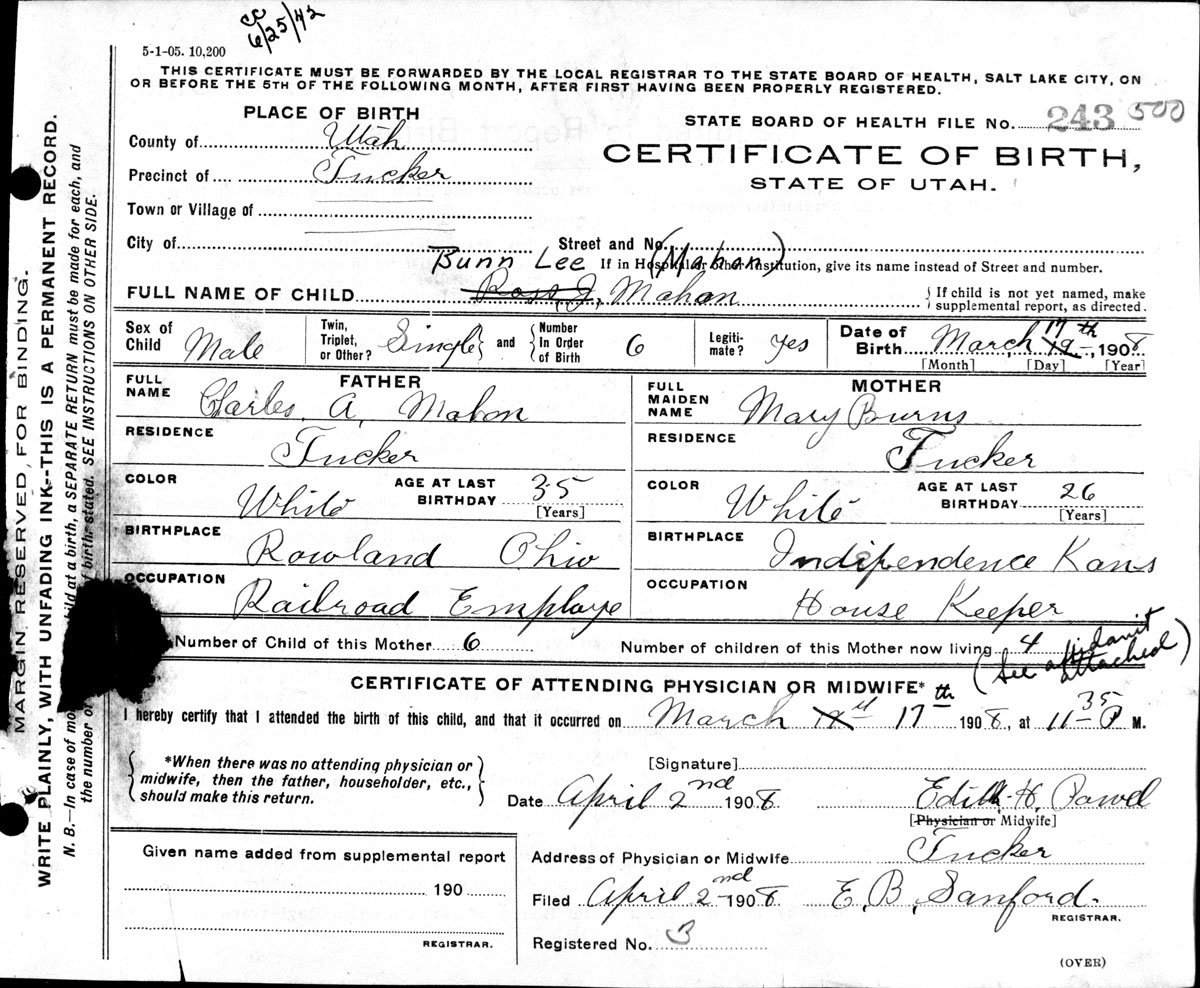 cc
6/25/42
5-1-05. 10,200
THIS CERTIFICATE MUST BE FORWARDED BY THE LOCAL REGISTRAR TO THE STATE BOARD OF HEALTH, SALT LAKE CITY, ON
OR BEFORE THE 5TH OF THE FOLLOWING MONTH, AFTER FIRST HAVING BEEN PROPERLY REGISTERED.
PLACE OF BIRTH
STATE BOARD OF HEALTH FILE No. 243 500
County of Utah
CERTIFICATE OF BIRTH,
Precinct of Tucker
STATE OF UTAH.
Town or Village of
City of Street and No.
Bunn Lee (Mahan)
If in Hospital or other Institution, give its name instead of Street and number.
FULL NAME OF CHILD Ross J, Mahan
{If child is not yet named, make
supplemental report, as directed.
Sex of Child Male
Twin, Triplet, or Other? Single} and {Number In Order of Birth 6
Legiti-mate? yes
Date of Birth March 19 17th, 1908
[Month] [Day] [Year]
FATHER
FULL NAME Charles. A, Mahon
RESIDENCE Tucker
COLOR White AGE AT LAST BIRTHDAY 35 [Years]
BIRTHPLACE Rowland Ohio
OCCUPATION Railroad Employe
MOTHER
FULL MAIDEN NAME Mary Burns
RESIDENCE Tucker
COLOR White AGE AT LAST BIRTHDAY 26 [Years]
BIRTHPLACE Indipendence Kans
OCCUPATION House Keeper
Number of Child of this Mother 6 Number of children of this Mother now living 4
(See affidavit attached)
CERTIFICATE OF ATTENDING PHYSICIAN OR MIDWIFE*
I hereby certify that I attended the birth of this child, and that it occurred on March 17th 1908, at 11 35 P M.
{*When there was no attending physician or
midwife, then the father, householder, etc.,
should make this return.}
[Signature]
Date April 2nd 1908 Edith. H. Powel
[Physician or Midwife]
Given name added from supplemental report
190
REGISTRAR.
Address of Physician or Midwife Tucker
Filed April 2nd 1908 E. B. Sanford.
REGISTRAR.
Registered No. 3
(OVER)
MARGIN RESERVED FOR BINDING.
WRITE PLAINLY, WITH UNFADING INK--THIS IS A PERMANENT RECORD.
N. B.—In case of mo child at a birth, a SEPARATE RETURN must be made for each, and
the number of birth stated. SEE INSTRUCTIONS ON OTHER SIDE.